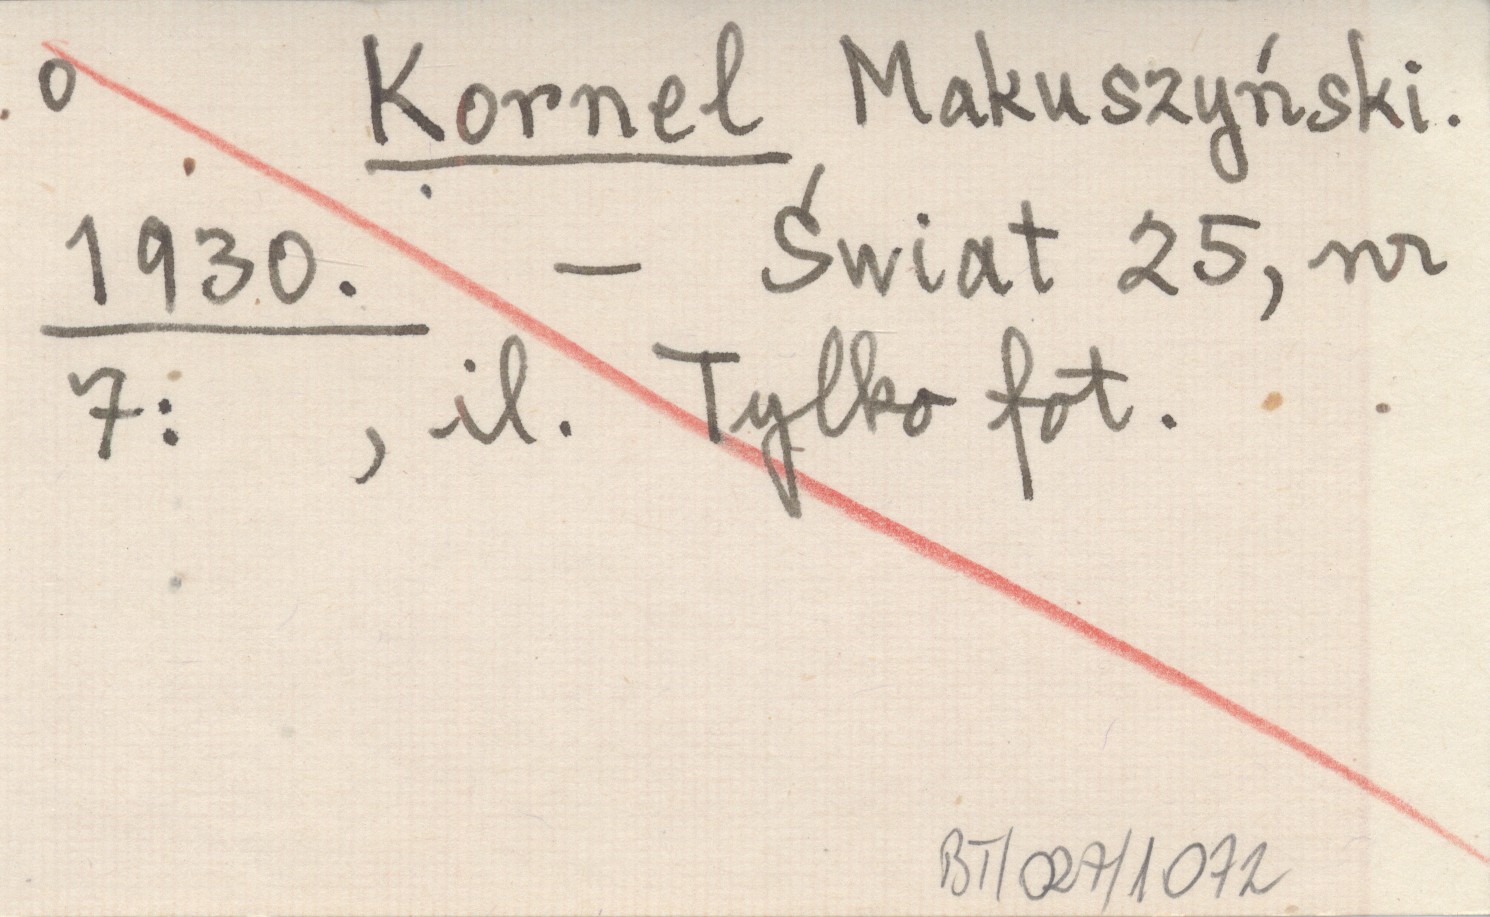 o Kornel Makuszyński.
1930. — Świat 25, nr
7: , il. Tylko fot.
BT/027/1072